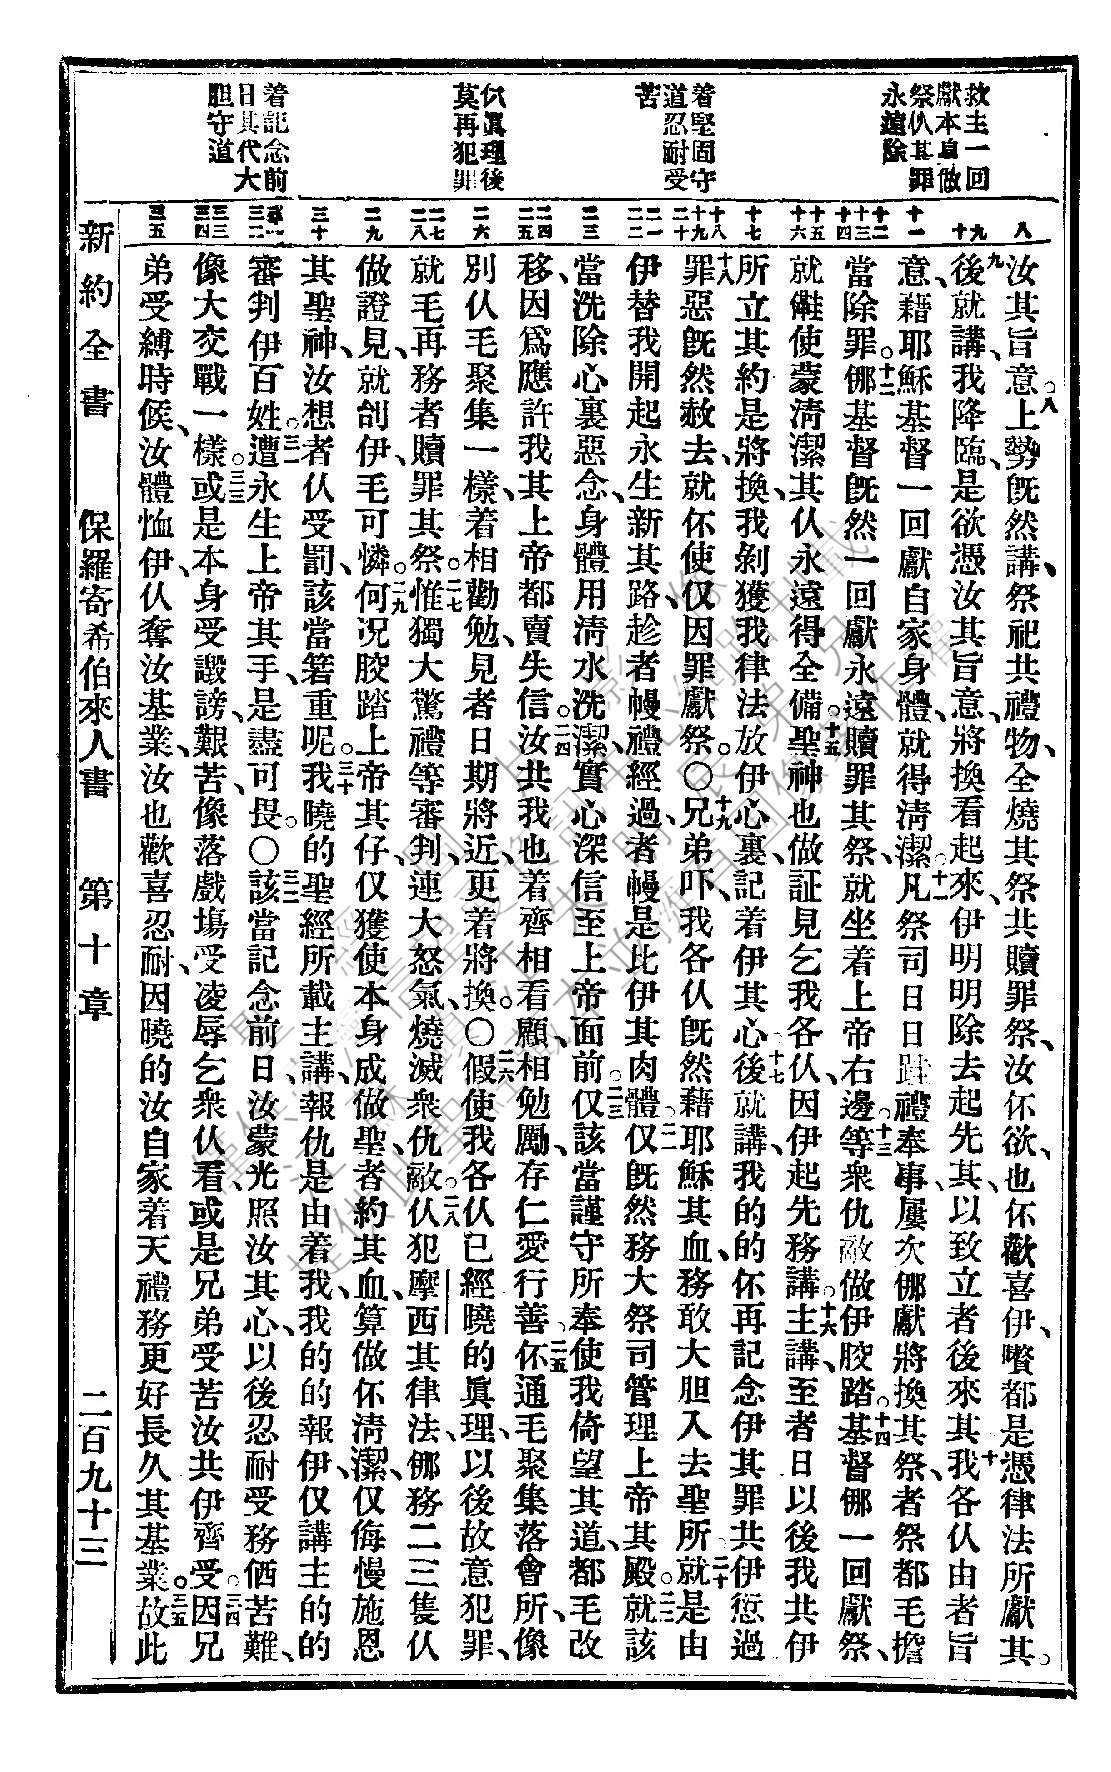 救主一回
獻本身做
祭仈其罪
永遠除
着堅固守
道忍耐受
苦
仈眞理後
莫再犯罪
着記念前
日其代大
胆守道
八
九
十
十一
十二
十三
十四
十五
十六
十七
十八
十九
二十
二一
二二
二三
二四
二五
二六
二七
二八
二九
三十
三一
三二
三三
三四
三五
汝其旨意。八上勢旣然講、祭祀共禮物、全燒其祭共贖罪祭、汝伓欲、也伓歡喜、伊贇都是憑律法所獻其。
九後就講、我降臨、是欲憑汝其旨意、將換看起來、伊明明除去起先其、以致立者後來其。十我各仈由者旨
意、藉耶穌基督一回獻自家身體、就得淸潔。十一凡祭司日日跬禮奉事、屢次㑚獻將換其祭、者祭都毛擔
當除罪。十二㑚基督旣然一回獻永遠贖罪其祭、就坐着上帝右邊。十三等衆仇敵做伊骹踏。十四基督㑚一回獻祭、
就𠆧使蒙淸潔其仈永遠得全備。十五聖神也做証見乞我各仈、因伊起先務講。十六主講、至者日以後、我共伊
所立其約是將換、我剝獲我律法放伊心裏、記着伊其心。十七後就講、我的的伓再記念伊其罪共伊愆過
十八罪惡旣然赦去、就伓使仅因罪獻祭。〇十九兄弟吓、我各仈旣然藉耶穌其血、務敢大胆入去聖所。二十就是由
伊替我開起永生新其路、趁者幔禮經過、者幔是比伊其肉體。二一仅旣然務大祭司管理上帝其殿。二二就該
當洗除心裏惡念、身體用淸水洗潔、實心深信至上帝面前。二三仅該當謹守所奉使我倚望其道、都毛改
移、因爲應許我其上帝都賣失信。二四汝共我也着齊相看顧、相勉勵、存仁愛行善。二五伓通毛聚集落會所、像
別仈毛聚集一樣、着相勸勉、見者日期將近、更着將換。〇二六假使我各仈已經曉的眞理、以後故意犯罪、
就毛再務者贖罪其祭。二七惟獨大驚禮等審判、連大怒氣、燒滅衆仇敵。二八仈犯摩西其律法、㑚務二三隻仈
做證見、就刣伊毛可憐。二九何况骹踏上帝其仔、仅獲使本身成做聖者約其血、算做伓淸潔、仅侮慢施恩
其聖神、汝想者仈受罰、該當窖重呢。三十我曉的聖經所載主講、報仇是由着我、我的的報伊、仅講主的的
審判伊百姓。三一遭永生上帝其手、是盡可畏。〇三二該當記念前日汝蒙光照汝其心、以後忍耐受務価苦難、
像大交戰一樣。三三或是本身受譭謗、艱苦、像落戲塲受凌辱乞衆仈看、或是兄弟受苦汝共伊齊受。三四因兄
弟受縛時候、汝體恤伊、仈奪汝基業、汝也歡喜忍耐、因曉的汝自家着天禮務更好長久其基業。三五故此
新約全書　保羅寄希伯來人書　第十章　二百九十三